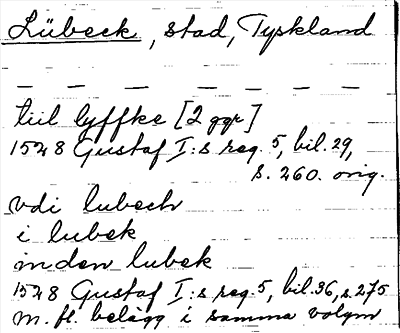 Lübeck, stad, Tyskland
— — — — — — — —
tiil lyffke [2 ggr]
1528 Gustaf I:s reg. 5, bil. 29,
s. 260. orig.
vdi lubech
i lubek
inden lubek
1528 Gustaf I:s reg. 5, bil. 36, s. 275
m. fl. belägg i samma volym